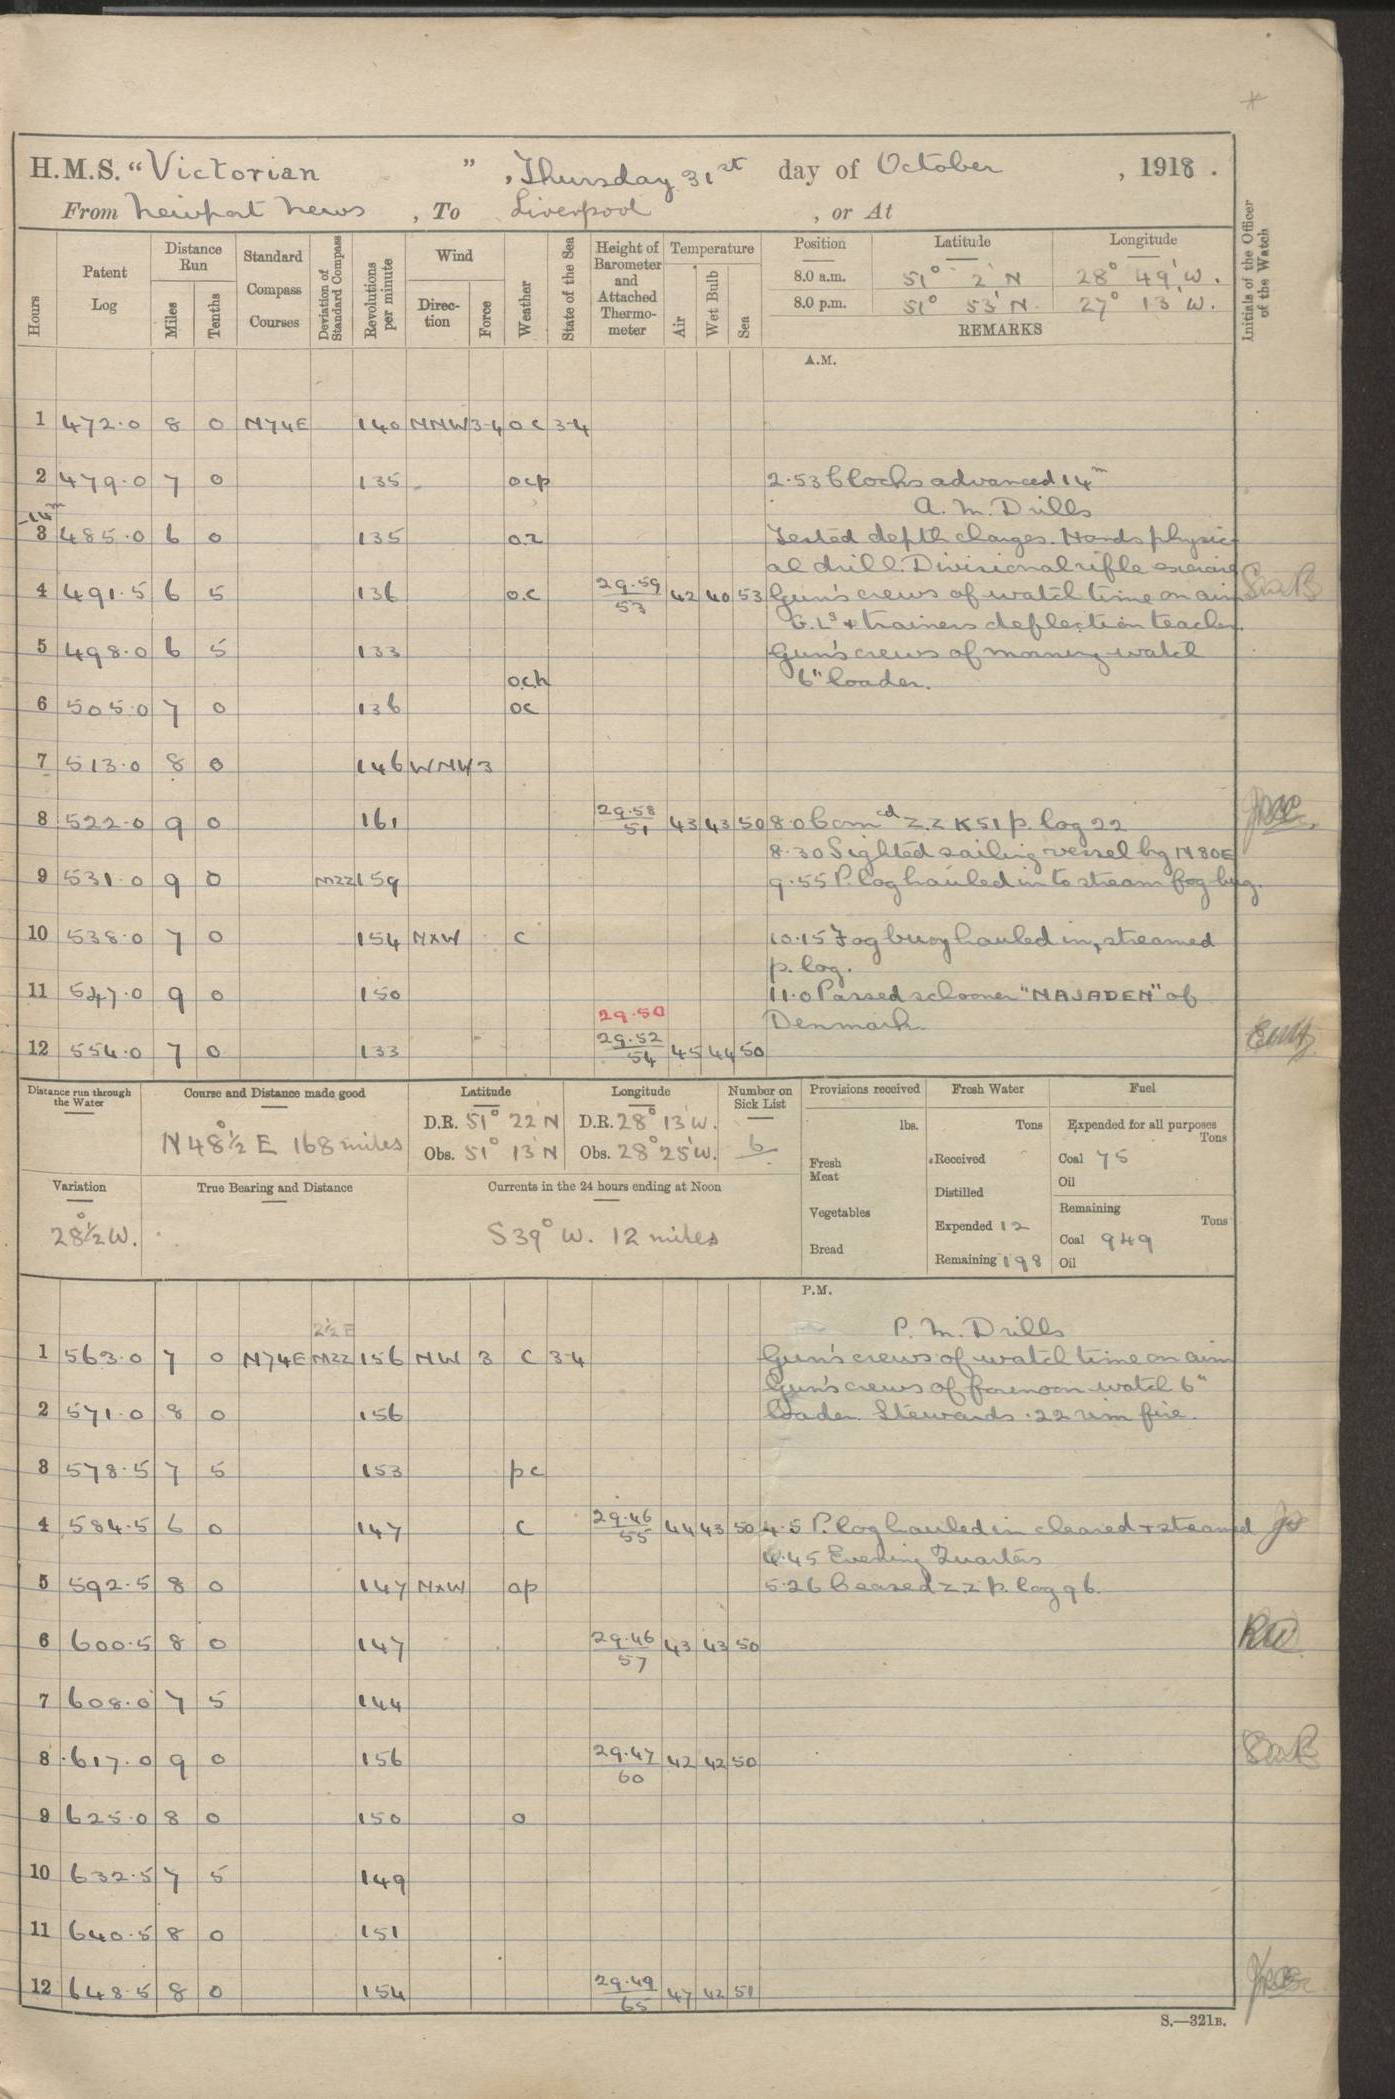 H.M.S. “Victorian ”, Thursday 31st day of October, 1918.
From Newport News, To Liverpool, or At
Hours
Patent Log
Distance Run
Miles
Tenths
Standard Compass Courses
Deviation of Standard Compass
Revolutions per minute
Wind
Direction
Force
Weather
State of the Sea
Height of Barometer and Attached Thermometer
Temperature
Air
Wet Bulb
Sea
Position Latitude Longitude
8.0 a.m. 51° 2' N 28° 49' W.
8.0 p.m. 51° 53' N. 27° 13' W.
REMARKS
Initials of the Officer of the Watch
A.M.
1 472.0 8 0 N74E 140 NNW 3-4 oc 3-4
2 479.0 7 0 135 ocp 2.53 Clocks advanced 14m
A.M. Drills
3 485.0 6 0 135 Tested depth charges. Hands physic-
al drill. Divisional rifle exercise
4 491.5 6 5 136 o.c 29.59 53 42 40 53 Gun's crews of watch time on aim
G.Ls + trainers deflection teacher.
5 498.0 6 5 133 Gun's crews of morning watch
och 6" loader.
6 505.0 7 0 136 oc
7 513.0 8 0 146 WNW 3
8 522.0 9 0 161 29.58 51 43 43 50 8.0 Comcd Z.Z K51 p. log 22
8.30 Sighted sailing vessel bg N80E
9 531.0 9 0 M22 159 9.55 P. log hauled in to stream fog buoy.
10 538.0 7 0 154 NxW c 10.15 Fog buoy hauled in, streamed
p. log.
11 547.0 9 0 150 11.0 Passed schooner "NAJADEN" of
29.50 Denmark.
12 554.0 7 0 133 29.52 54 45 44 50
Distance run through the Water
Course and Distance made good
N 48°½ E 168 miles
Latitude
D.R. 51° 22' N
Obs. 51° 13' N
Longitude
D.R. 28° 13' W.
Obs. 28° 25' W.
Number on Sick List
6
Variation
28°½ W.
True Bearing and Distance
Currents in the 24 hours ending at Noon
S 39° W. 12 miles
Provisions received
lbs.
Fresh Meat
Vegetables
Bread
Fresh Water
Tons
Received
Distilled
Expended 12
Remaining 198
Fuel
Expended for all purposes
Tons
Coal 75
Oil
Remaining
Tons
Coal 949
Oil
P.M.
2½ E P.M. Drills
1 563.0 7 0 N74E M22 156 NW 3 c 3-4 Gun's crews of watch time on aim
Gun's crews of forenoon watch 6"
2 571.0 8 0 156 loader. Stewards .22 rim fire.
3 578.5 7 5 153 pc
4 584.5 6 0 147 c 29.46 55 44 43 50 4.5 P. log hauled in cleared + streamed
4.45 Evening Quarters
5 592.5 8 0 147 NxW op 5.26 Ceased Z.Z. p. log 96.
6 600.5 8 0 147 29.46 57 43 43 50 RW
7 608.0 7 5 144
8 617.0 9 0 156 29.47 60 42 42 50
9 625.0 8 0 150 o
10 632.5 7 5 149
11 640.5 8 0 151
12 648.5 8 0 154 29.49 65 47 42 51
S.—321B.